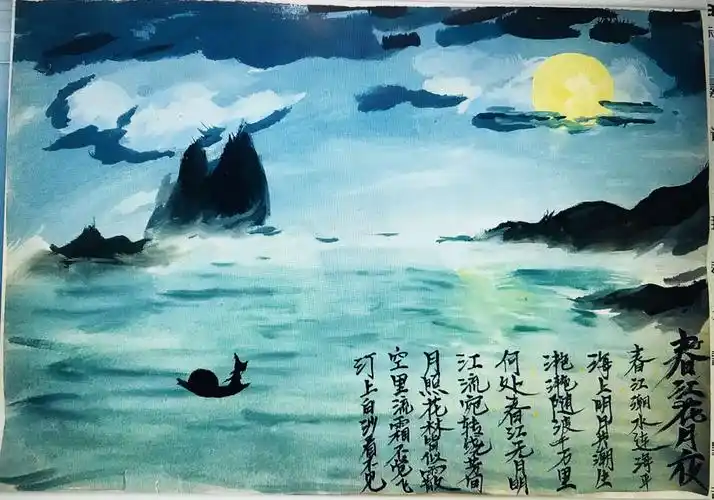 春江花月夜
春江潮水连海平
海上明月共潮生
滟滟随波千万里
何处春江无月明
江流宛转绕芳甸
月照花林皆似霰
空里流霜不觉飞
汀上白沙看不见